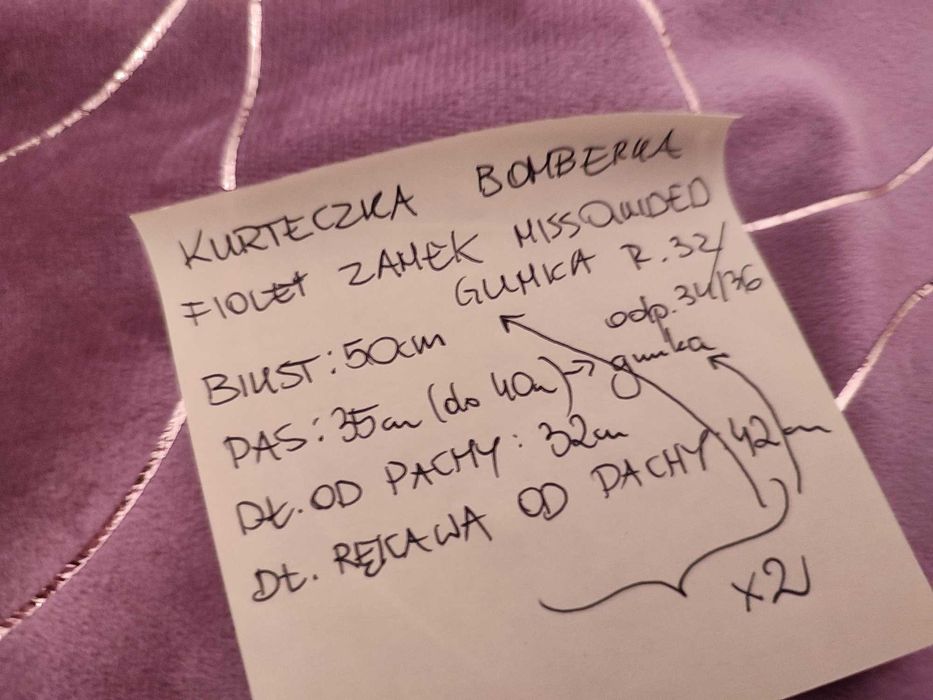 KURTECZKA BOMBERKA
FIOLET ZAMEK MISSGUIDED
GUMKA R. 32/
odp. 34/36
BIUST: 50cm
PAS: 35cm (do 40cm) → gumka
DŁ. OD PACHY: 32cm
DŁ. RĘKAWA OD PACHY 42cm
x2